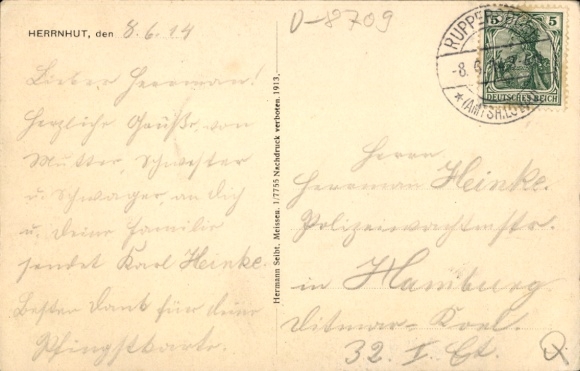 HERRNHUT, den 8.6.14
Lieber Herrman!
Herzliche Grüße von
Mutter, Schwester
u. Schwager, an dich
u. deine Familie
sendet Karl Heinke.
Bester Dank für deine
Pfingstkarte.
Hermann Seibt, Meissen. 1/7755 Nachdruck verboten. 1913.
0-8709
RUPPERSDORF
-8.6.14
* (AMTSH. LÖB
5 5
DEUTSCHES REICH
Herrn
Herrman Heinke.
Polizeiwachtmstr.
in Hamburg
Ditmar-Koel.
32. I. Et.